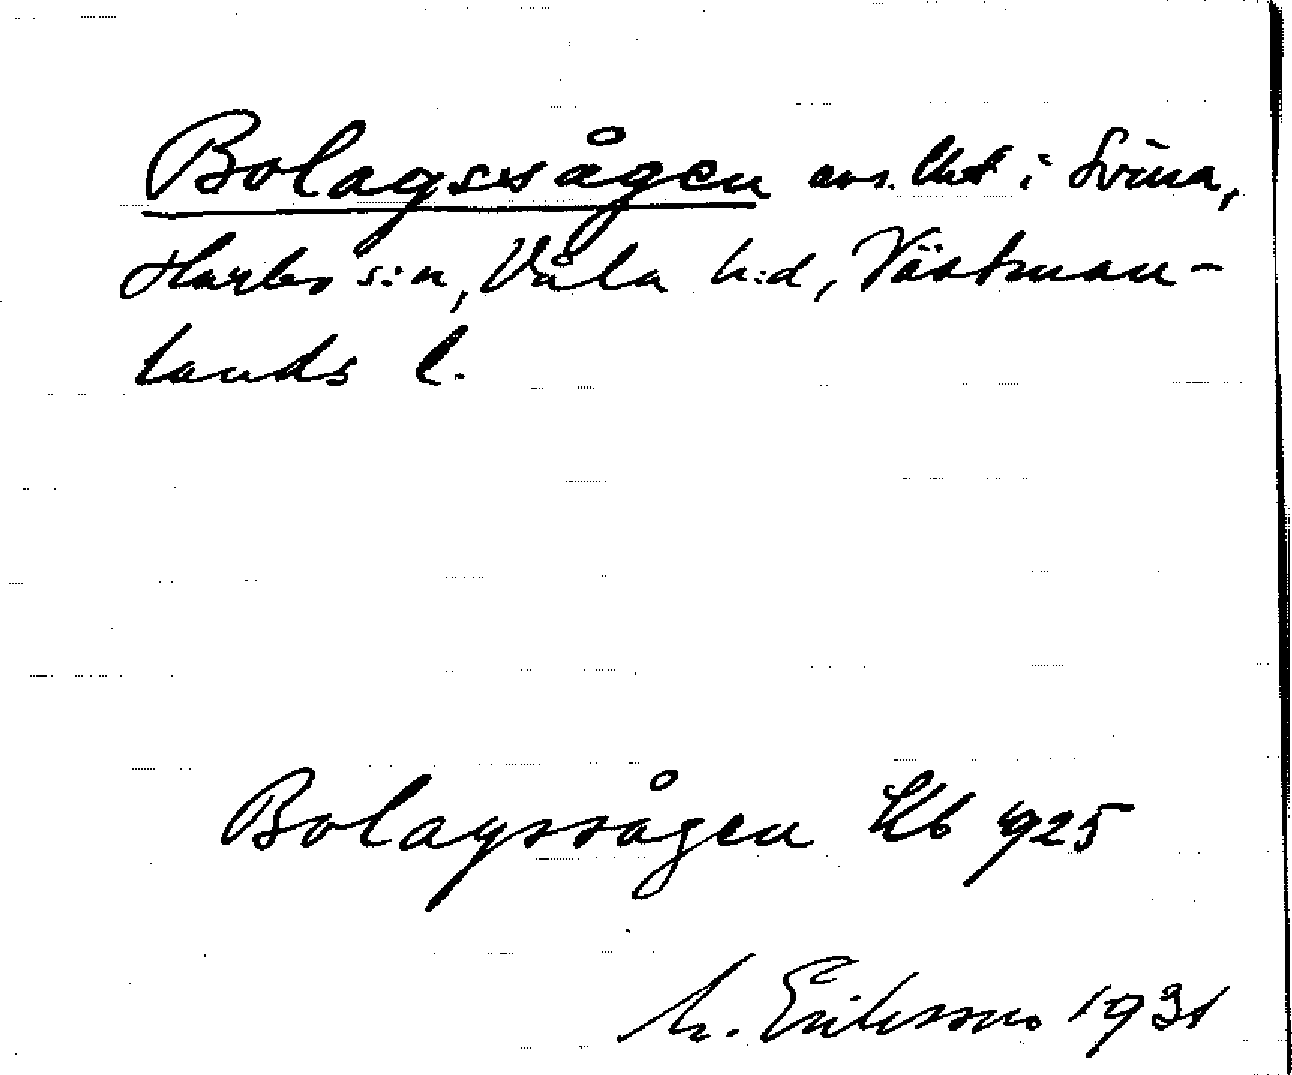 Bolagssågen avs. lht i Svina,
Harbo s:n, Våla h:d, Västman-
lands l.
Bolagssågen Kb 1925
M. Eriksson 1931